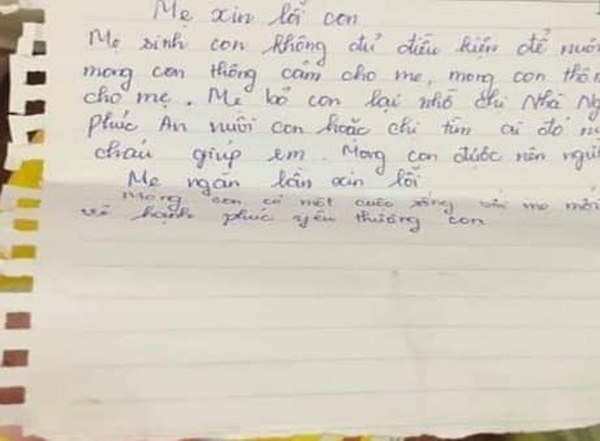 Mẹ xin lỗi con
Mẹ sinh con không đủ điều kiện để nuôi
mong con thông cảm cho mẹ, mong con thôn
cho mẹ. Mẹ bỏ con lại nhờ chị Nhà Ng
phúc An nuôi con hoặc chị tìm ai đó n
cháu giúp em. Mong con được nên người
Mẹ ngàn lần xin lỗi
Mong con có một cuộc sống mẹ mới
về hạnh phúc yêu thương con